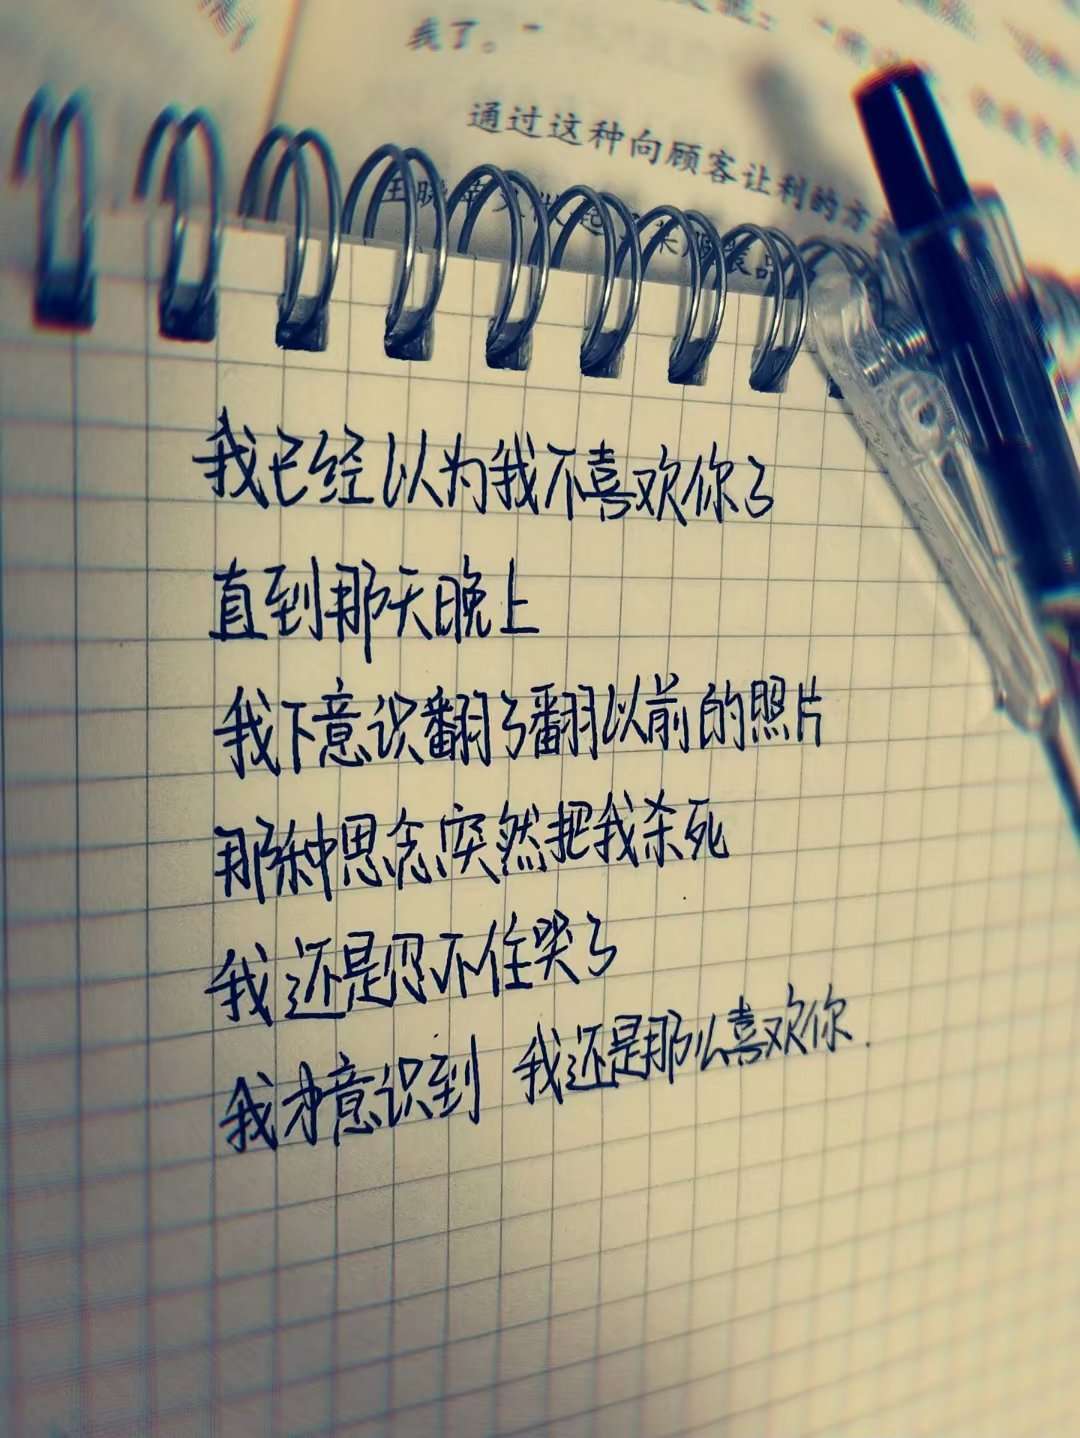 我了。"
通过这种向顾客让利的方
我已经以为我不喜欢你了
直到那天晚上
我下意识翻了翻以前的照片
那种思念突然把我杀死
我还是忍不住哭了
我才意识到 我还是那么喜欢你.